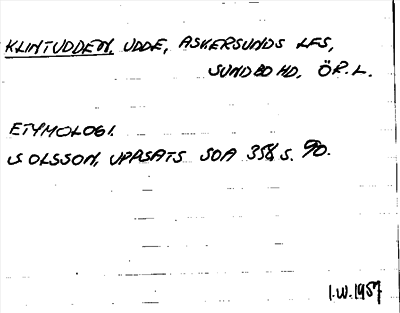 KLINTUDDEN, UDDE, ASKERSUNDS LFS,
SUNDBO HD, ÖR.L.
ETYMOLOGI.
S OLSSON, UPPSATS SOA 358 S. 90.
I.W.1957